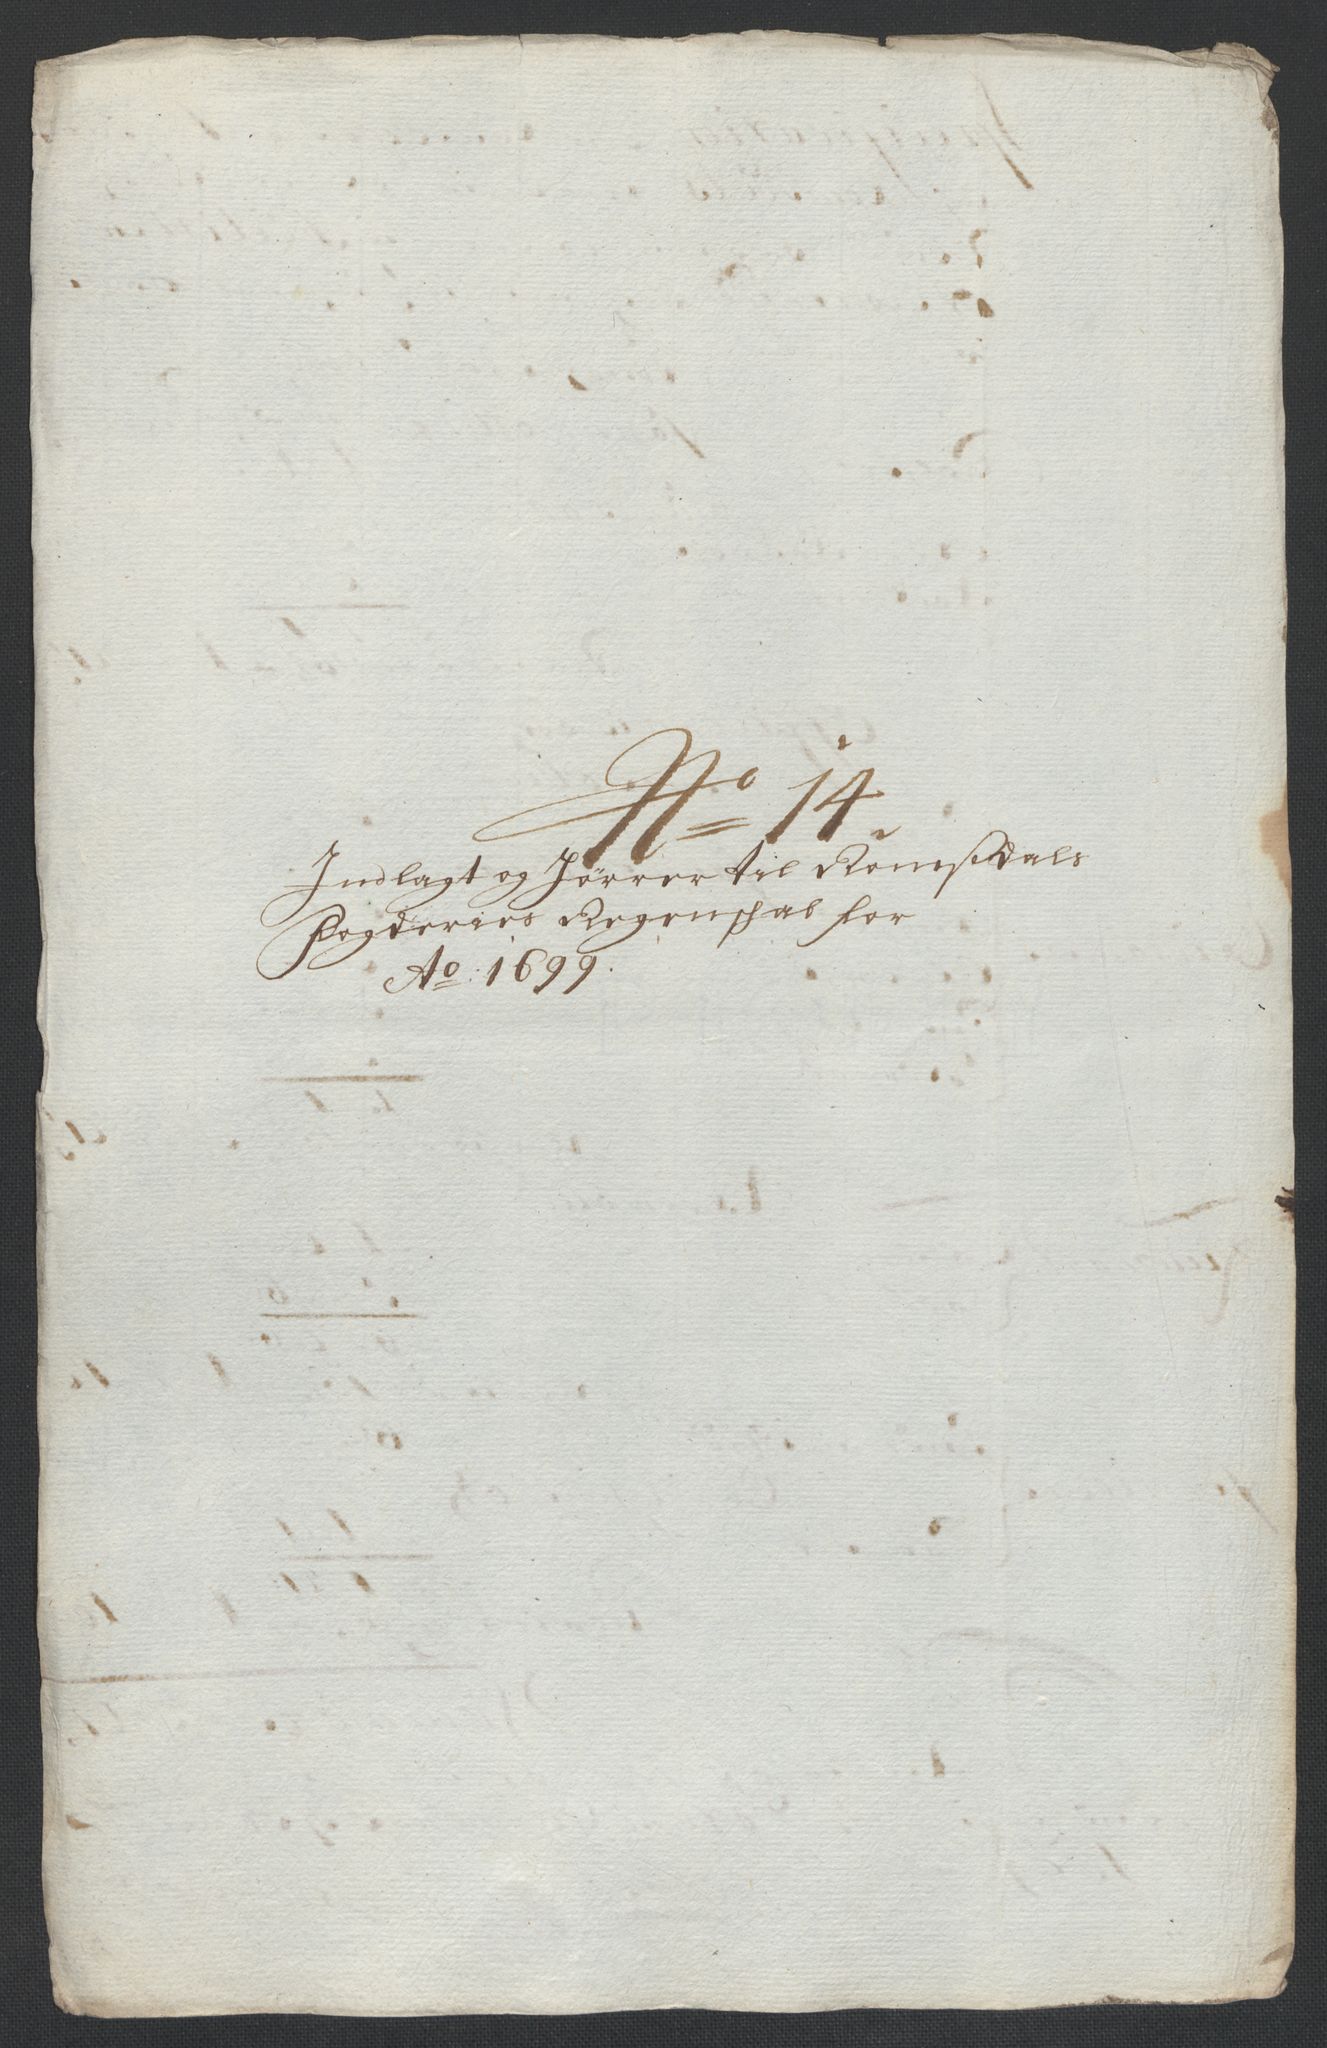 No 14
Indlagt og Hörrer til Romsdals
Fogderies Regenschab for
Ao: 1699.